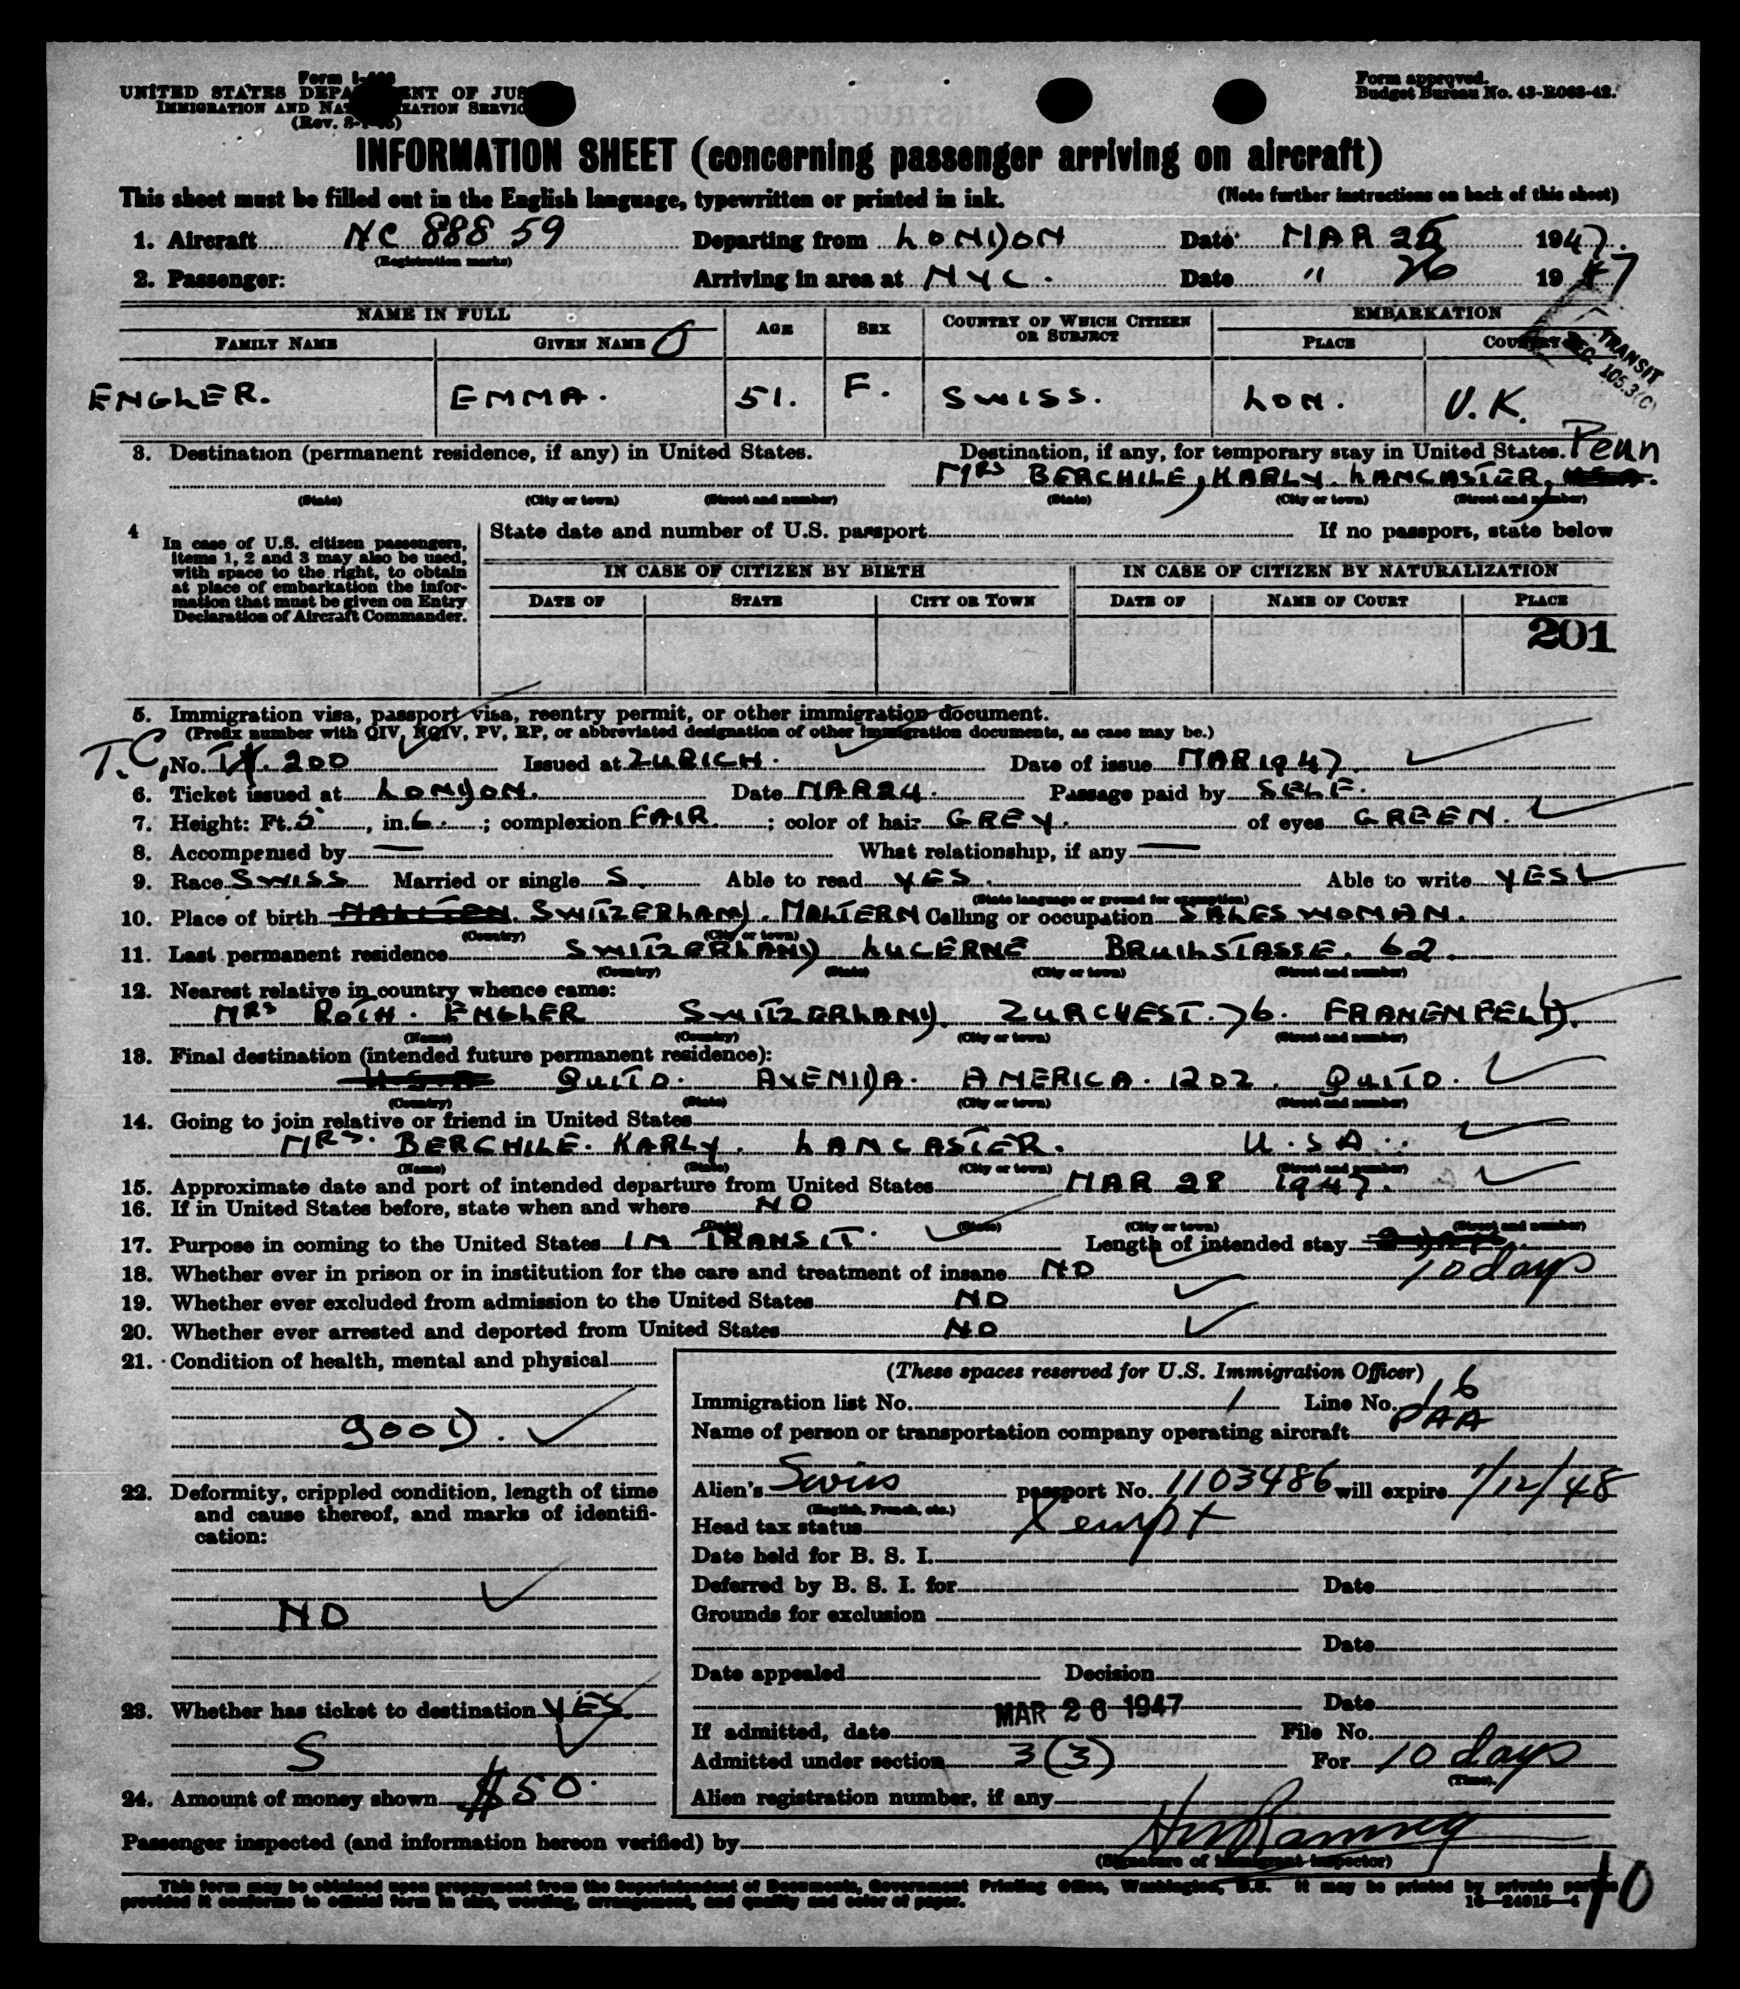 UNITED STATES DEPARTMENT OF JUSTICE
IMMIGRATION AND NATURALIZATION SERVICE
Form approved.
Budget Bureau No. 43-R063-42.
INFORMATION SHEET (concerning passenger arriving on aircraft)
This sheet must be filled out in the English language, typewritten or printed in ink. (Note further instructions on back of this sheet)
1. Aircraft NC 88859 Departing from LONDON Date MAR 25 1947.
(Registration marks)
2. Passenger: Arriving in area at NYC. Date " 26 1947
NAME IN FULL AGE SEX COUNTRY OF WHICH CITIZEN OR SUBJECT EMBARKATION
FAMILY NAME GIVEN NAME PLACE COUNTRY
TRANSIT
SEC. 105.3(C)
ENGLER. EMMA. 51. F. SWISS. LON. U.K.
3. Destination (permanent residence, if any) in United States. Destination, if any, for temporary stay in United States. Penn
MRS BERCHILE, KARLY. LANCASTER, USA.
(State) (City or town) (Street and number) (State) (City or town) (Street and number)
4 In case of U.S. citizen passengers, items 1, 2 and 3 may also be used, with space to the right, to obtain at place of embarkation the information that must be given on Entry Declaration of Aircraft Commander.
State date and number of U.S. passport If no passport, state below
IN CASE OF CITIZEN BY BIRTH IN CASE OF CITIZEN BY NATURALIZATION
DATE OF STATE CITY OR TOWN DATE OF NAME OF COURT PLACE
201
5. Immigration visa, passport visa, reentry permit, or other immigration document.
(Prefix number with QIV, NQIV, PV, RP, or abbreviated designation of other immigration documents, as case may be.)
T.C, No. 200 Issued at ZURICH. Date of issue MAR 1947.
6. Ticket issued at LONDON. Date MAR 24. Passage paid by SELF.
7. Height: Ft. 5, in. 6.; complexion FAIR.; color of hair GREY. of eyes GREEN.
8. Accompanied by — What relationship, if any —
9. Race SWISS Married or single S. Able to read YES. Able to write YES
(State language or ground for exemption)
10. Place of birth SWITZERLAND. MALTERN Calling or occupation SALES WOMAN.
(Country) (City or town)
11. Last permanent residence SWITZERLAND LUCERNE BRUIHSTASSE. 62.
(Country) (State) (City or town) (Street and number)
12. Nearest relative in country whence came:
MRS ROTH. ENGLER SWITZERLAND. ZURCHEST. 76. FRANENFELD.
(Name) (Country) (City or town) (Street and number)
13. Final destination (intended future permanent residence):
USA QUITO. AVENIDA. AMERICA. 1202. QUITO.
(Country) (State) (City or town) (Street and number)
14. Going to join relative or friend in United States
MRS. BERCHILE. KARLY. LANCASTER. U.S.A.
(Name) (State) (City or town) (Street and number)
15. Approximate date and port of intended departure from United States MAR 28 1947.
16. If in United States before, state when and where NO
(Date) (State) (City or town) (Street and number)
17. Purpose in coming to the United States IN TRANSIT. Length of intended stay
10 days
18. Whether ever in prison or in institution for the care and treatment of insane NO
19. Whether ever excluded from admission to the United States NO
20. Whether ever arrested and deported from United States NO
21. Condition of health, mental and physical
GOOD.
22. Deformity, crippled condition, length of time and cause thereof, and marks of identification:
NO
23. Whether has ticket to destination YES.
S
24. Amount of money shown $50.
(These spaces reserved for U.S. Immigration Officer)
Immigration list No. 1 Line No. 16
Name of person or transportation company operating aircraft PAA
Alien's Swiss passport No. 1103486 will expire 1/12/48
(English, French, etc.)
Head tax status Xempt
Date held for B. S. I.
Deferred by B. S. I. for Date
Grounds for exclusion
Date
Date appealed Decision
Date
If admitted, date MAR 26 1947 File No.
Admitted under section 3(3) For 10 days
(Time).
Alien registration number, if any
Passenger inspected (and information hereon verified) by
(Signature of immigrant inspector)
This form may be obtained upon prepayment from the Superintendent of Documents, Government Printing Office, Washington, D.C. It may be printed by private parties
provided it conforms to official form in size, wording, arrangement, and quality and color of paper. 16—24015-4
10